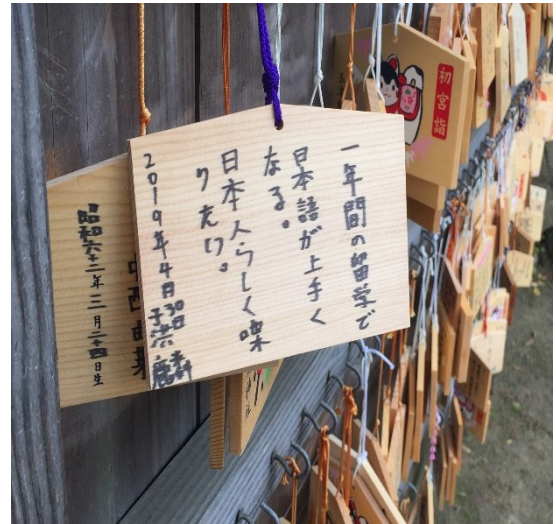 一年間の留学で
日本語が上手く
なる。
日本人らしく喋
りたい。
2019年4月30日
昭和六十二年三月二十四日生
初宮詣